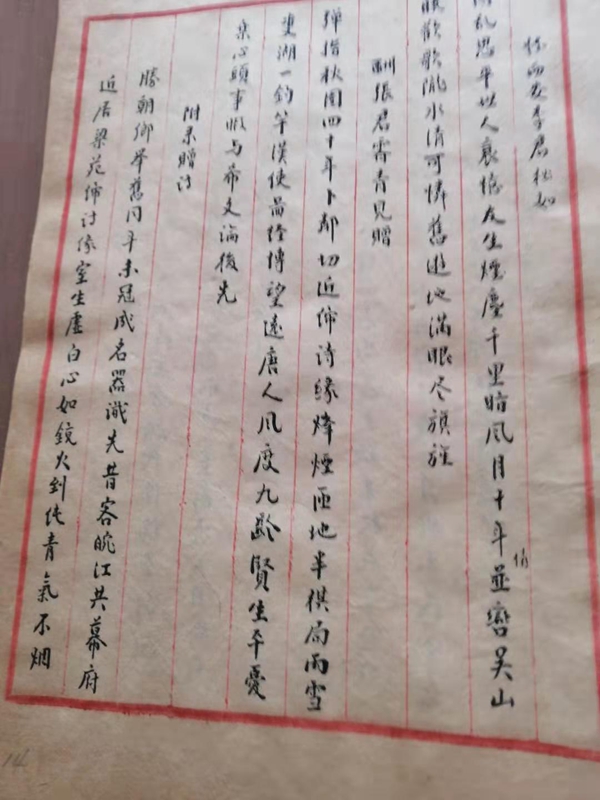 怀西友李君秋如
乱思平世人衰忆友生烟尘千里暗风月十年情並辔吴山
眼歡歌隴水清可憐舊遊地滿眼尽旗旌
酬張君霄青見贈
彈指秋闱四十年卜鄰切近締詩緣烽煙匝地半棋局雨雪
重湖一釣竿漢使嵩經博望遠唐人風度九齡賢生平憂
樂心頭事敢与希文論後先
附来贈詩
勝朝鄉舉舊同年未冠成名器識先昔客皖江共幕府
近居梁苑締詩緣室生虛白心如鏡火到純青氣不烟
14